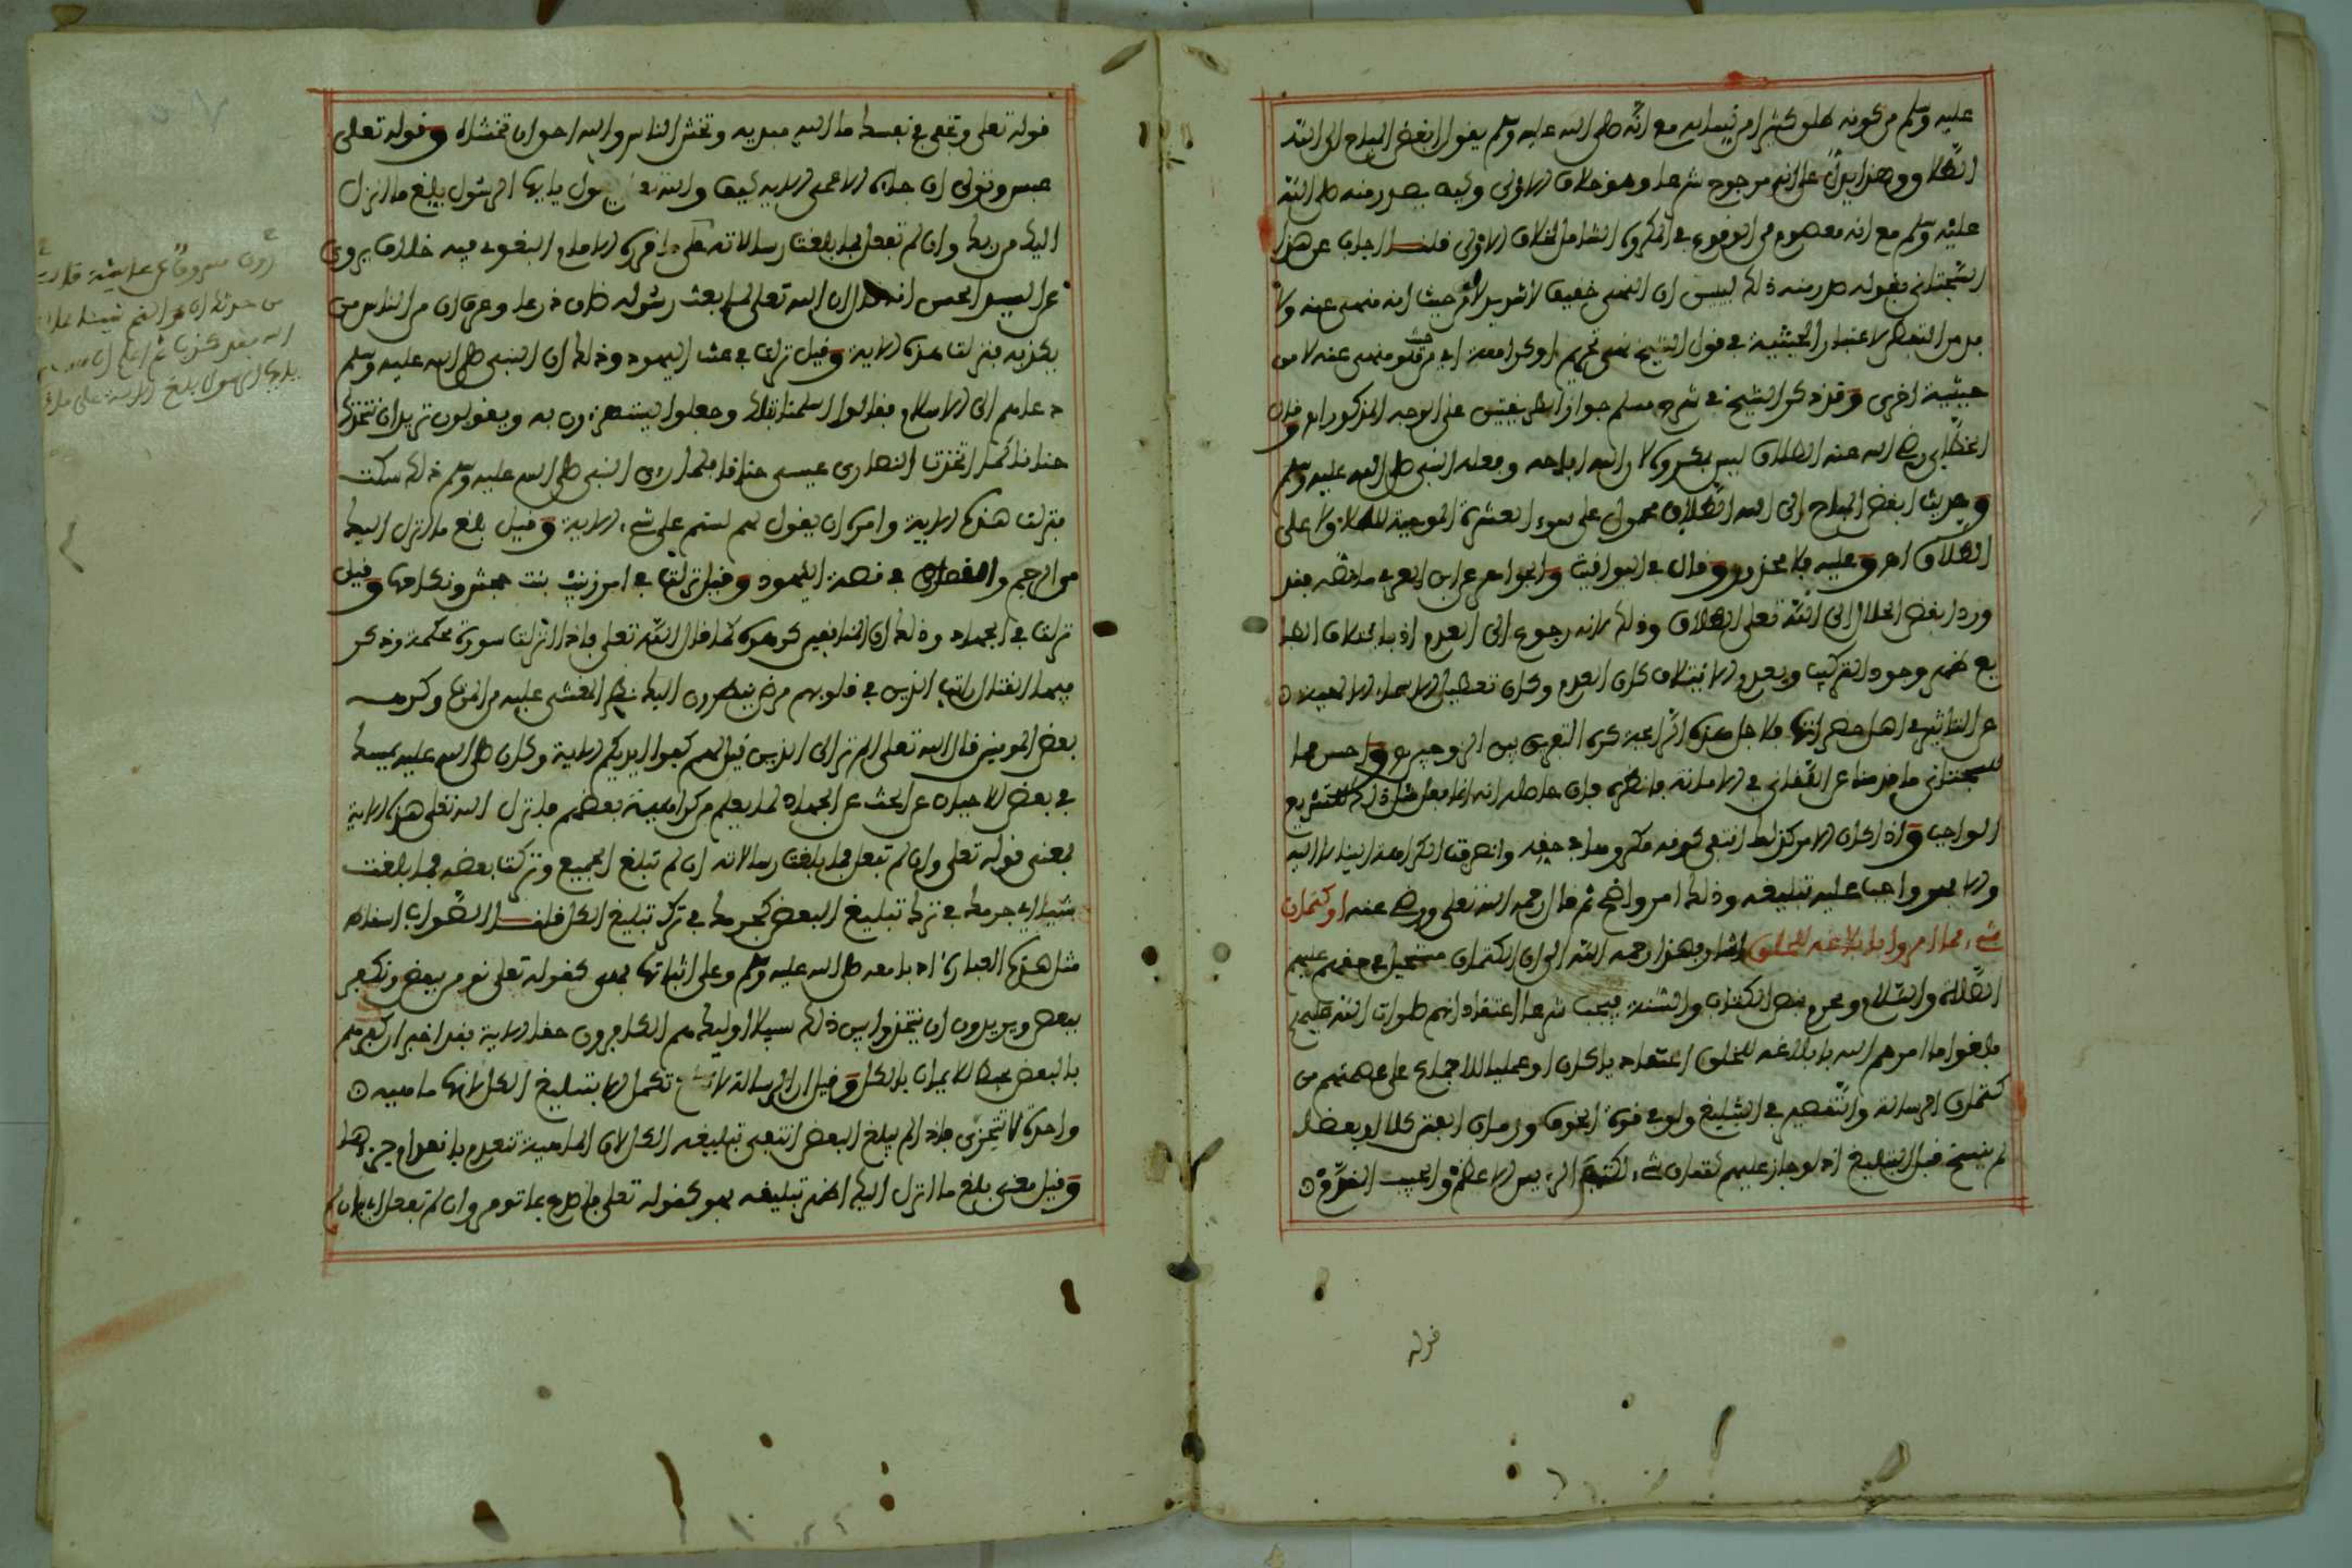 عليه وسلم من كونه طلق كثيرا من نسائه مع انه صلى الله عليه وسلم يقول ابغض المباح الى الله
الطلاق وهذا يدل على انه مرجوح شرعا وهو خلاف الاولى وكيف يصدر منه صلى الله
عليه وسلم مع انه معصوم من الوقوع في المكروه الشامل لخلاف الاولى قلت اجاب عن هذا
السجتاني بقوله صدر منه ذلك ليبين ان النهي خفيفا لا شديد لا من حيث انه منهي عنه ولا
بد من التفطن لاعتبار الحيثية في قول الشيخ نهي تحريم او كراهة اي من حيث هو منهي عنه لا من
حيثية اخرى وقد ذكر الشيخ في شرح مسلم جواز على الوجه المذكور اهـ وقال
الخطابي رضي الله عنه الطلاق ليس بمكروه لان الله اباحه وفعله النبي صلى الله عليه وسلم
وحديث ابغض المباح الى الله الطلاق محمول على سوء العشرة الموجبة للطلاق لا على
الطلاق اهـ وعليه فلا محذور وقال في اليواقيت والجواهر عن ابن العربي ما نصه فقد
ورد ابغض الحلال الى الله تعالى الطلاق وذلك لانه رجوع الى العدم اذ بائتلاف الطبا
يع ظهر وجود التركيب وبعدم الايتلاف كان العدم وكان تعطيل الاسماء الالهية
عن التاثير في اهل حضراتها فلاجل هذه الرائحة كره التفريق بين الزوجين واحسن مما
للسجتاني ما قدمنا عن اللقاني في الامانة فانظره فان حاصله انه انما يفعل مثل ذلك للتشريع
الواجب واذا كان الامر كذلك انتفى كونه مكروها في حقه وانصرفت الكراهة الينا لا اليه
والا فهو واجب عليه تبليغه وذلك امر واضح ثم قال رحمه الله تعالى ورضي عنه او كتمان
شيء مما امروا بابلاغه للخلق اشار بهذا رحمه الله الى ان الكتمان مستحيل في حقهم عليهم
الصلاة والسلام ومحرم بنص الكتاب والسنة فيجب شرعا اعتقاد انهم صلوات الله عليهم
بلغوا ما امرهم الله بابلاغه للخلق اعتقاديا كان او عمليا للاجماع على عصمتهم من
كتمان الرسالة والتقصير في التبليغ ولو في قوة الخوف وزمان الفتن كلا او بعضا
لم ينسخ قبل التبليغ اذ لو جاز عليهم كتمان شيء لكتم الرءيس الاعظم والحبيب المقرب
قوله
قوله تعالى وتخفي في نفسك ما الله مبديه وتخشى الناس والله احق ان تخشاه وقوله تعالى
عبس وتولى ان جاءه الاعمى الاية كيف والله يقول يايها الرسول بلغ ما انزل
اليك من ربك وان لم تفعل فما بلغت رسالاته البغوي فيه خلاف يروى
عن الحسن انه قال ان الله تعالى لما بعث رسوله ضاق ذرعا وعرف ان من الناس من
يكذبه فنزلت هذه الاية وقيل نزلت في عتب اليهود وذلك ان النبي صلى الله عليه وسلم
دعاهم الى الاسلام فقالوا اسلمنا قبلك وجعلوا يستهزءون به ويقولون تريد ان نتخذك
حنانا كما اتخذت النصارى عيسى حنانا فلما راى النبي صلى الله عليه وسلم ذلك سكت
فنزلت هذه الاية وامره ان يقول لهم لستم على شيء الاية وقيل بلغ ما انزل اليك
من الرجم والقصاص في قصة اليهود وقيل نزلت في امر زينب بنت جحش ونكاحها وقيل
نزلت في الجهاد وذلك ان المنافقين كرهوه كما قال الله تعالى فاذا انزلت سورة محكمة وذكر
فيها القتال رايت الذين في قلوبهم مرض ينظرون اليك نظر المغشي عليه من الموت وكرهه
بعض المومنين قال الله تعالى الم تر الى الذين قيل لهم كفوا ايديكم الاية وكان صلى الله عليه يمسك
في بعض الاحيان عن الحث عن الجهاد لما يعلم من كراهية بعضهم فانزل الله تعالى هذه الاية
فمعنى قوله تعالى وان لم تفعل فما بلغت رسالاته ان لم تبلغ الجميع وتركت بعضه فما بلغت
شيئا اي جرمك في ترك تبليغ البعض كجرمك في ترك تبليغ الكل قلت الصواب اسقاط
مثل هذه العبارة ادبا معه صلى الله عليه وسلم وعلى اثباتها فهي كقوله تعالى نومن ببعض ونكفر
ببعض ويريدون ان يتخذوا بين ذلك سبيلا اولئك هم الكافرون حقا الاية فقد اخبر ان كفرهم
بالبعض محبط للايمان بالكل وقيل ان الرسالة لا تكمل الا بتبليغ الكل لانها ماهية
واحدة لا تتجزى فاذا لم يبلغ البعض انتفى تبليغه الكل لان الماهية تنعدم بانعدام جزءها
وقيل معنى بلغ ما انزل اليك اظهر تبليغه فهو كقوله تعالى فاصدع بما تومر وان لم تفعل اي فان لم
روى مسروق عن عايشة قالت
من حدثك ان محمدا كتم شيئا مما انزل
الله فقد كذب
يايها الرسول بلغ